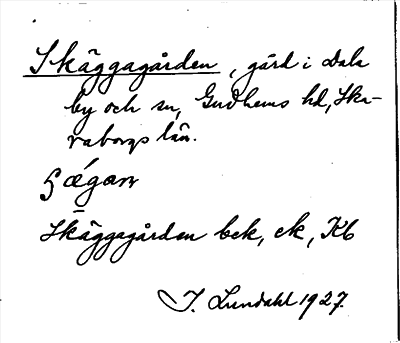 Skäggagården, gård i Dala
by och sn, Gudhems hd, Ska-
raborgs län.
Skäggagården bek, ek, Kb
I. Lundahl 1927.